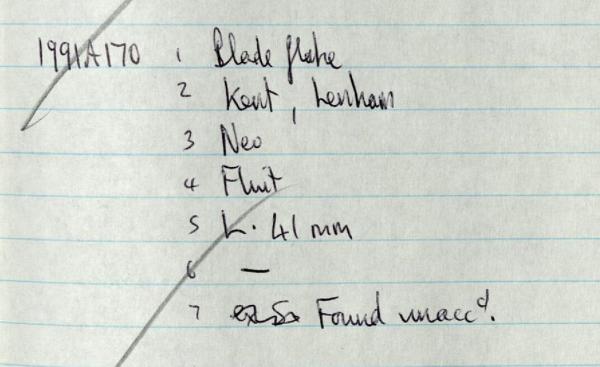 1991A170 1 Blade flake
2 Kent, Lenham
3 Neo
4 Flint
5 L. 41 mm
6 —
7 Found unaccd.